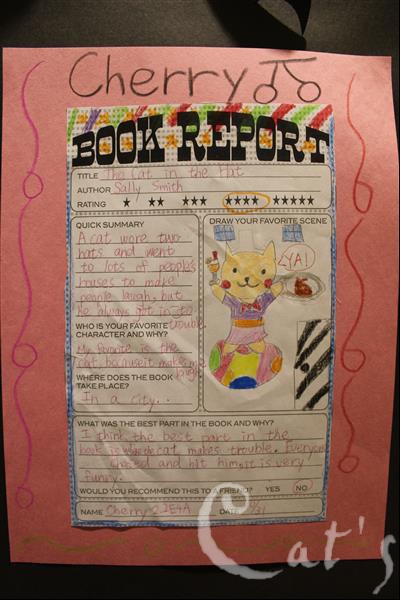 Cherry
BOOK REPORT
TITLE The Cat in the Hat
AUTHOR Sally Smith
RATING ★ ★★ ★★★ ★★★★ ★★★★★
QUICK SUMMARY
A cat wore two
hats and went
to lots of people's
houses to make
people laugh, but
he always got in to
trouble.
WHO IS YOUR FAVORITE
CHARACTER AND WHY?
My favorite is the
cat, because it makes me
laugh.
WHERE DOES THE BOOK
TAKE PLACE?
In a city.
DRAW YOUR FAVORITE SCENE
YA!
WHAT WAS THE BEST PART IN THE BOOK AND WHY?
I think the best part in the
book is cat makes trouble. Everyone
chased and hit him, it is very
funny.
WOULD YOU RECOMMEND THIS TO A FRIEND? YES NO
NAME Cherry 2JE4A DATE /31
Cat's